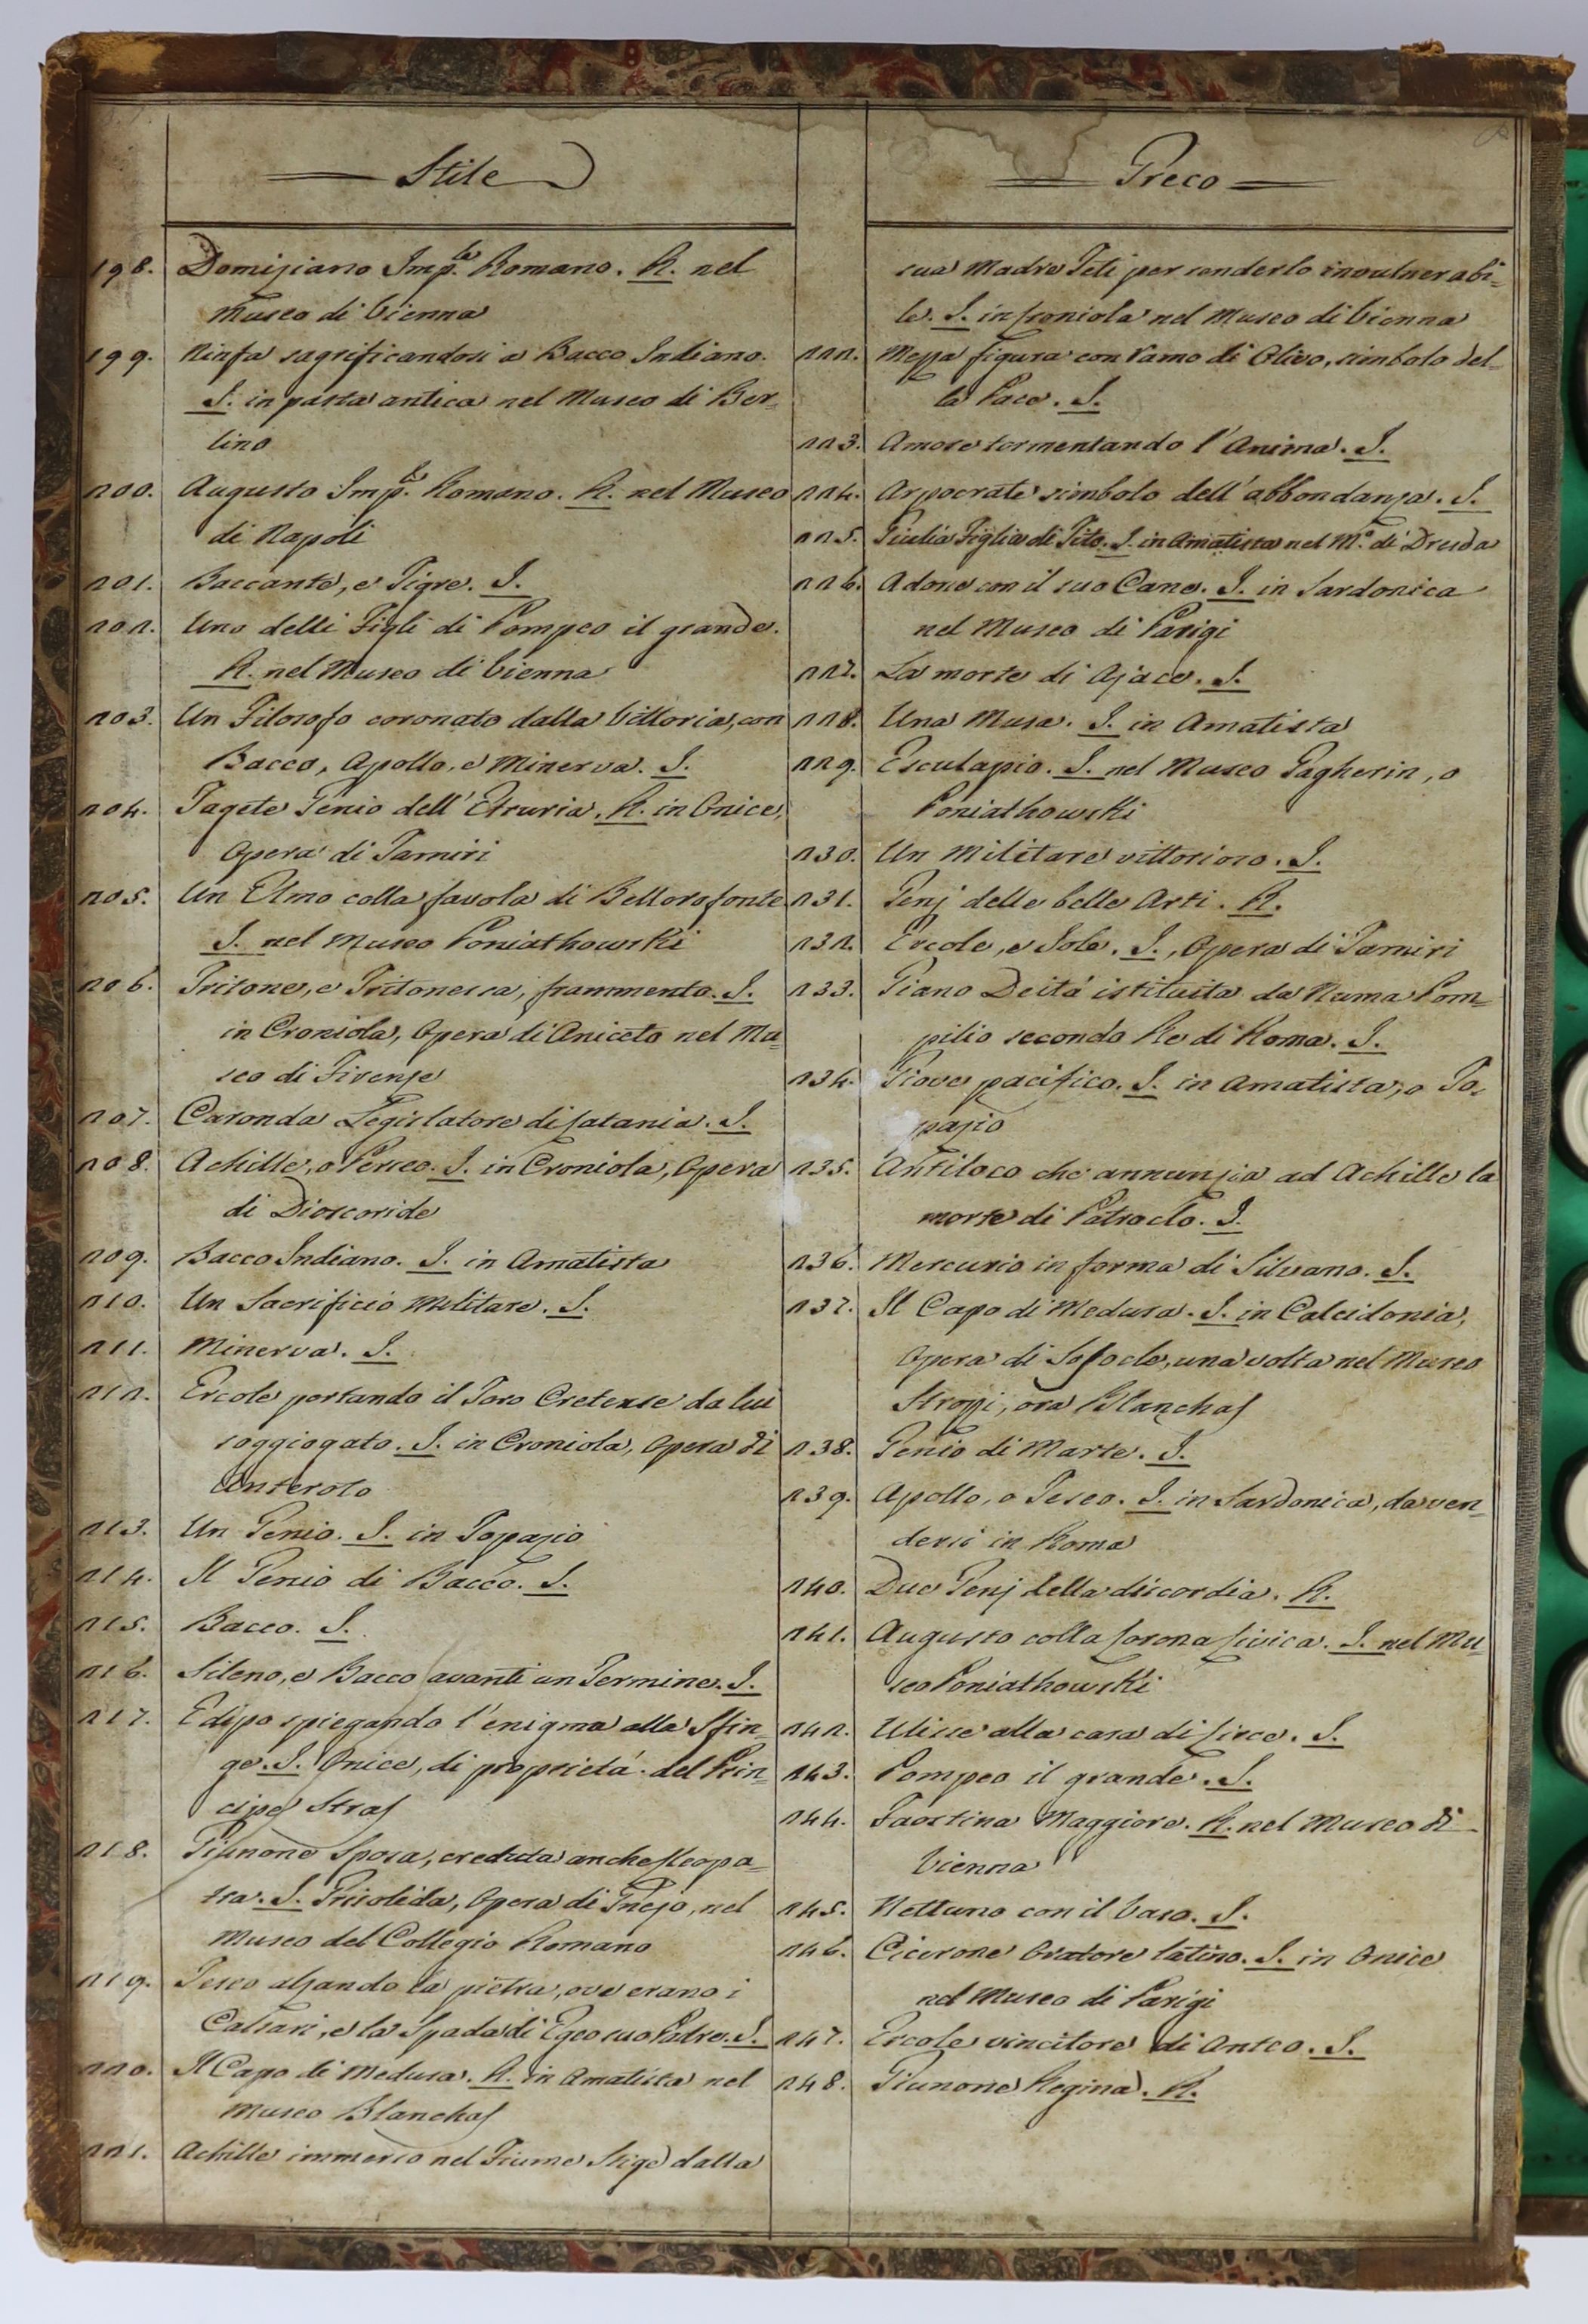 Stile
198. Domiziano Imp.re Romano. R. nel
Museo di Vienna
199. Ninfa sagrificandosi a Bacco Indiano.
S. in pasta antica nel Museo di Ber=
lino
200. Augusto Imp.re Romano. R. nel Museo
di Napoli
201. Baccante, e Tigre. S.
202. Uno delli Figli di Pompeo il grande.
R. nel Museo di Vienna
203. Un Filosofo coronato dalla Vittoria, con
Bacco, Apollo, e Minerva. S.
204. Tagete Genio dell'Etruria. R. in Onice,
Opera di Tamiri
205. Un Elmo colla favola di Bellorofonte
S. nel Museo Poniathowski
206. Tritone, e Tritonessa, frammento. S.
in Croniola, Opera di Aniceto nel Mu=
seo di Firenze
207. Caronda Legislatore di Catania. S.
208. Achille, o Perseo. S. in Croniola, Opera
di Dioscoride
209. Bacco Indiano. S. in Amatista
210. Un Sacrificio Militare. S.
211. Minerva. S.
212. Ercole portando il Toro Cretense da lui
soggiogato. S. in Croniola, Opera di
Anteroto
213. Un Genio. S. in Topazio
214. Il Genio di Bacco. S.
215. Bacco. S.
216. Sileno, e Bacco avanti un Termine. S.
217. Edipo spiegando l'enigma alla Sfin=
ge. S. Onice, di proprietá del Prin=
cipe Straf
218. Giunone Sposa, creduta anche Cleopa=
tra. S. Grisolida, Opera di Gnejo, nel
Museo del Collegio Romano
219. Teseo alzando la pietra, ove erano i
Calzari, e la Spada di Egeo suo Padre. S.
220. Il Capo di Medusa. R. in Amatista nel
Museo Blanchaf
221. Achille immerso nel Fiume Stige dalla
Greco
sua Madre Teti per renderlo invulnerabi=
le. S. in Croniola nel Museo di Vienna
222. Mezza figura con ramo di Olivo, simbolo del=
la Pace. S.
223. Amore tormentando l'Anima. S.
224. Arpocrate simbolo dell'abbondanza. S.
225. Giulia Figlia di Tito. S. in Amatista nel M.o di Dresda
226. Adone con il suo Cane. S. in Sardonica
nel Museo di Parigi
227. La morte di Ajace. S.
228. Una Musa. S. in Amatista
229. Esculapio. S. nel Museo Gagherin, o
Poniathowski
230. Un Militare vittorioso. S.
231. Genj delle belle Arti. R.
232. Ercole, e Iole. S., Opera di Tamiri
233. Giano Deitá istituita da Numa Pom=
pilio secondo Re di Roma. S.
234. Giove pacifico. S. in Amatista, o To=
pazio
235. Antiloco che annunzia ad Achille la
morte di Patroclo. S.
236. Mercurio in forma di Silvano. S.
237. Il Capo di Medusa. S. in Calcidonia,
Opera di Sofocle, una volta nel Museo
Strozzi, ora Blanchaf
238. Genio di Marte. S.
239. Apollo, o Teseo. S. in Sardonica, da ven=
dersi in Roma
240. Due Genj della discordia. R.
241. Augusto colla Corona Civica. S. nel Mu=
seo Poniathowski
242. Ulisse alla casa di Circe. S.
243. Pompeo il grande. S.
244. Faostina Maggiore. R. nel Museo di
Vienna
245. Nettuno con il Vaso. S.
246. Cicerone Oratore latino. S. in Onice
nel Museo di Parigi
247. Ercole vincitore di Anteo. S.
248. Giunone Regina. R.